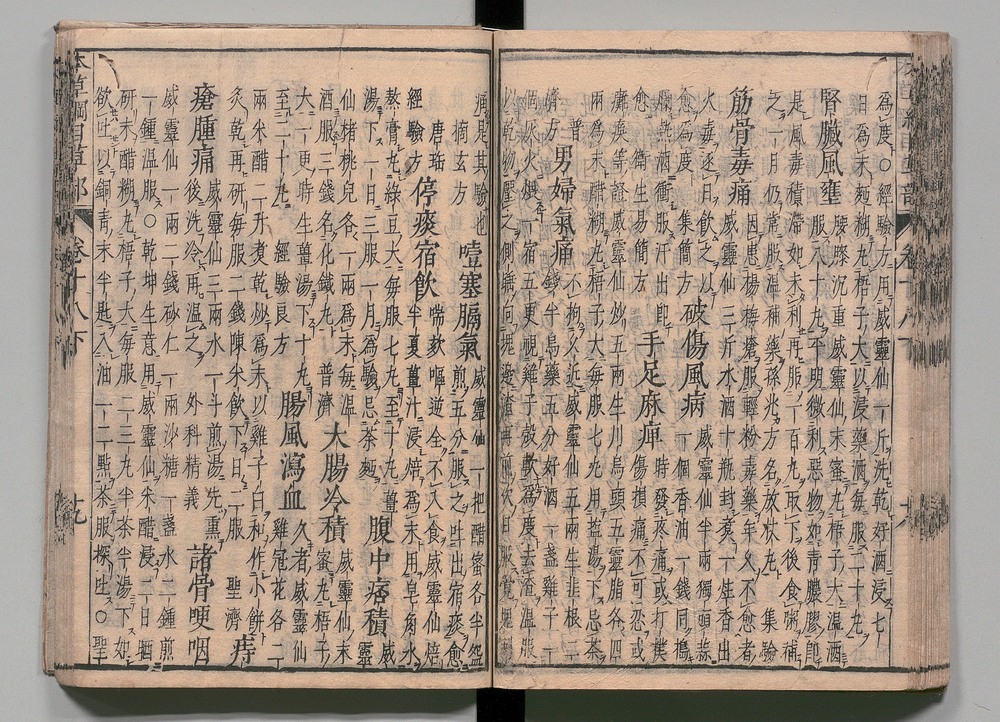 為度○經驗方用威靈仙一斤洗乾好酒浸七
日為末麪糊丸梧子大以浸藥酒毎服二十丸
腎臟風壅 腰膝沉重威靈仙末蜜丸梧子大温酒
服八十丸平明微利惡物如青膿膠即
是風毒積滯如未利再服一百丸取下後食粥補
之一月仍常服温補藥孫兆方名放杖丸 集驗
筋骨毒痛 因患楊梅瘡服輕粉毒藥年久不愈者
威靈仙三斤水酒十瓶封煮一炷香出
火毒逐日飲之以
愈為度 集簡方 破傷風病 威靈仙半兩獨頭蒜
一個香油一錢同搗
爛熱酒衝服汗出即
愈 衛生易簡方 手足麻痺 時發疼痛或打撲
傷損痛不可忍或
癱瘓等證威靈仙炒五兩生川烏頭五靈脂各四
兩為末醋糊丸梧子大毎服七丸用盐湯下忌茶
普
濟方 男婦氣痛 不拘久近威靈仙五兩生韭根二
錢半烏藥五分好酒一盞雞子一
個灰火煨一宿五更視雞子殼軟為度去渣温服
以乾物壓之側睡向塊邊渣再煎次日服覺塊刺
痛是其驗也
摘玄方 噎塞膈氣 威靈仙一把醋蜜各半盌
煎五分服之吐出宿痰愈
唐瑶
經驗方 停痰宿飲 喘欬嘔逆全不入食威靈仙焙
半夏薑汁浸焙為末用皂角水
熬膏丸綠豆大毎服七丸至十丸薑
湯下一日三服一月為驗忌茶麪 腹中痞積 威
靈
仙楮桃兒各一兩為末毎温
酒服三錢名化鐵丸 普濟 大腸冷積 威靈仙末
蜜丸梧子
大一更時生薑湯下十丸
至二十丸 經驗良方 腸風瀉血 久者威靈仙
雞冠花各二
兩米醋二升煮乾炒為末以雞子白和作小餅
炙乾再研毎服二錢陳米飲下日二服 聖濟 痔
瘡腫痛 威靈仙三兩水一斗煎湯先熏
後洗冷再温之 外科精義 諸骨哽咽
威靈仙一兩二錢砂仁一兩沙糖一盞水二鍾煎
一鍾温服○乾坤生意用威靈仙米醋浸二日晒
研末醋糊丸梧子大毎服二三丸半茶半湯下如
欲吐以銅青末半匙入油一二點茶服探吐○聖
卷十八下